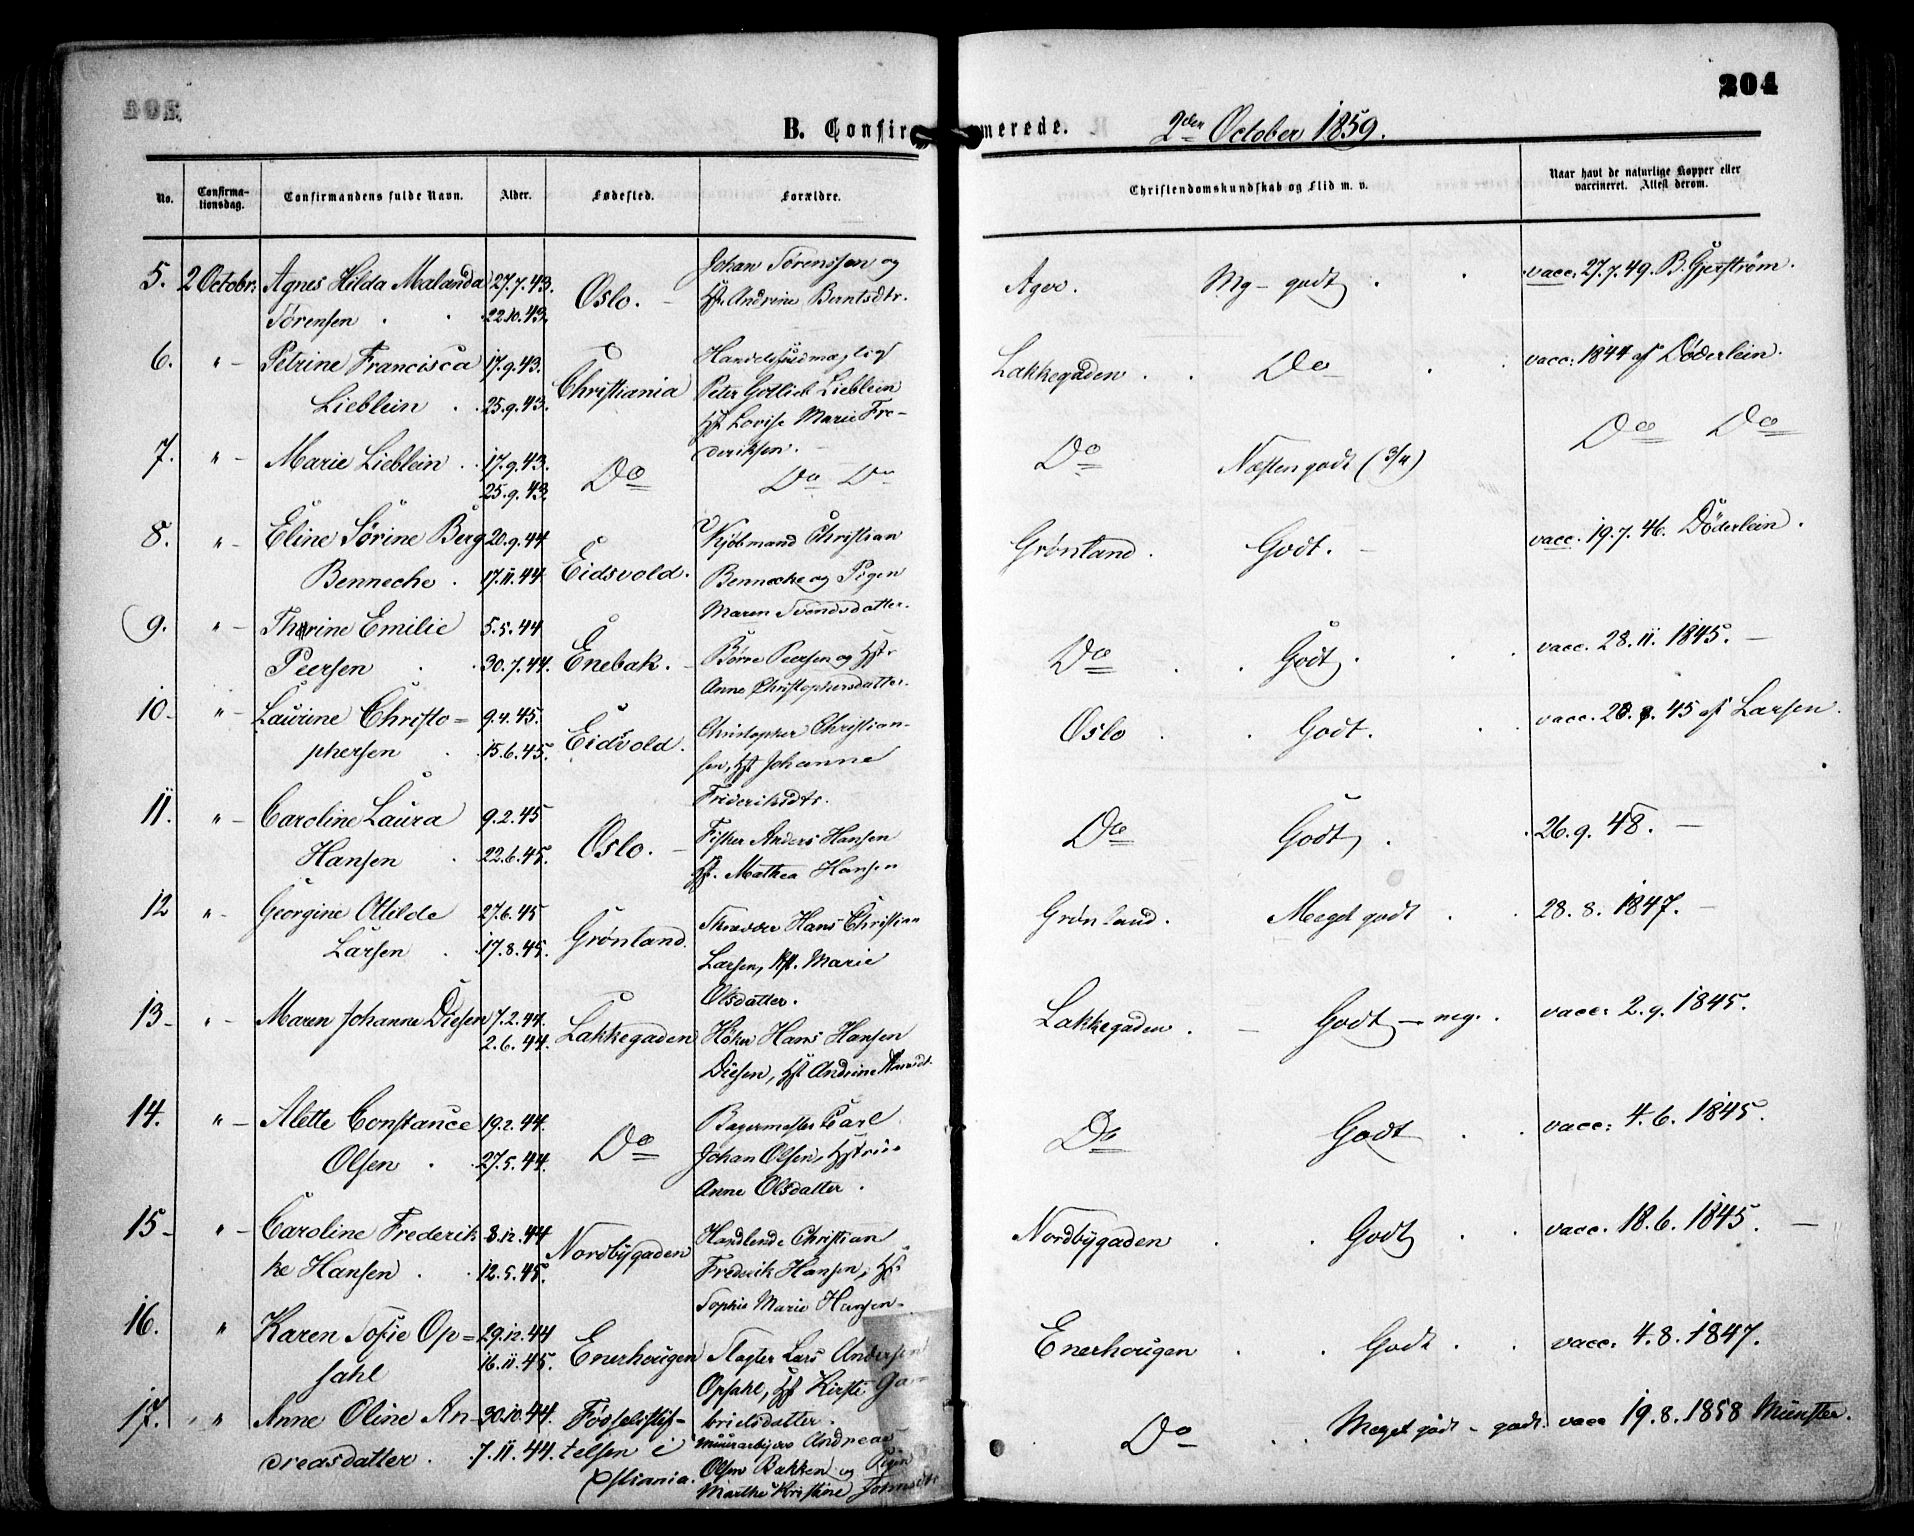 204
B. Confirmerede.
2den October 1859.
No. Confirma-tionsdag. Confirmandens fulde Navn. Alder. Fødested. Forældre. Christendomskundskab og Flid m. v. Naar havt de naturlige Kopper eller vaccineret. Attest derom.
5. 2 Octobr. Agnes Hilda Malanda 27.7.43. Oslo. Johan Sørenssen og Ager. Mg - godt vacc. 27.7.49. B. Gjerstrøm.
Sørensen 22.10.43. Hst. Andrine Berntsdtr.
6. " Petrine Francisca 17.9.43. Christiania Lakkegaden Do vacc. 1844 af Døderlein.
Lieblein 25.9.43. Peter Gotlieb Lieblein
Hst. Lovise Marie Fre-
deriksen.
7. " Marie Lieblein 17.9.43. Do Do Do Do Næsten godt (3/4) Do Do
25.9.43.
8. " Eline Sørine Berg 20.9.44 Eidsvold. Kjøbmand Christian Grønland. Godt. vacc. 19.7.46. Døderlein.
Benneche 17.11.44 Benneche og Pigen
Maren Svendsdatter.
9. " Thrine Emilie 5.5.44 Enebak. Børre Peersen og Hst. Do Godt vacc. 28.11.1845.
Peersen 30.7.44. Anne Christophersdatter.
10 " Laurine Christo= 9.4.45. Eidsvold. Christopher Christian- Oslo Godt. vacc. 45 af Larsen.
phersen 15.6.45. sen, Hst. Johanne
Frideriksdtr.
11. " Caroline Laura 9.2.45 Oslo. Fisker Anders Hansen Do Godt 26.9.48.
Hansen 22.6.45. Hst. Mathea Hansen
12 " Georgine Otilde 27.6.45 Grønland. Hans Christian Grønland. Meget godt 28.8.1847.
Larsen 17.8.45. Larsen, Hst. Marie
Olsdatter.
13 " Maren Johanne Diesen 7.2.44. Lakkegaden Høker Hans Hansen Lakkegaden. Godt - meg. vacc. 2.9.1845.
2.6.44. Diesen, Hst. Andrine
14. " Alette Constance 19.2.44. Do Bagermester Carl Do Godt vacc: 4.6.1845.
Olsen 27.5.44. Johan Olsen, Hstrue
Anne Olsdatter.
15 " Caroline Frederik 8.12.44 Nordbygaden Handlende Christian Nordbygaden Godt vacc. 18.6.1845.
ke Hansen 12.5.45. Frederik Hansen, Hst.
Sophie Marie Hansen
16. " Karen Sofie Op= 29.12.44 Enerhougen Slagter Lars Andersen Enerhougen Godt vacc. 4.8.1847.
sahl 16.11.45. Opsahl, Hst. Kirsti Ga-
brielsdatter.
17. " Anne Oline An- 30.10.44. Fødselsstif- Muurarbejder Andreas Do Meget godt - godt. vacc 19.8.1858 Münster.
dreasdatter 7.11.44. telsen i Olsen Bakken og Pigen
Xstiania. Marthe Kristine